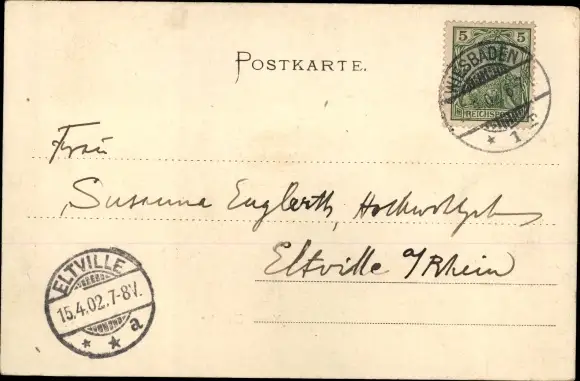 POSTKARTE.
5 5
REICHSPOST
WIESBADEN
* 1 c
Frau
Susanna Englerth,
Eltville a/Rhein
ELTVILLE
15.4.02.7-8V.
* * a